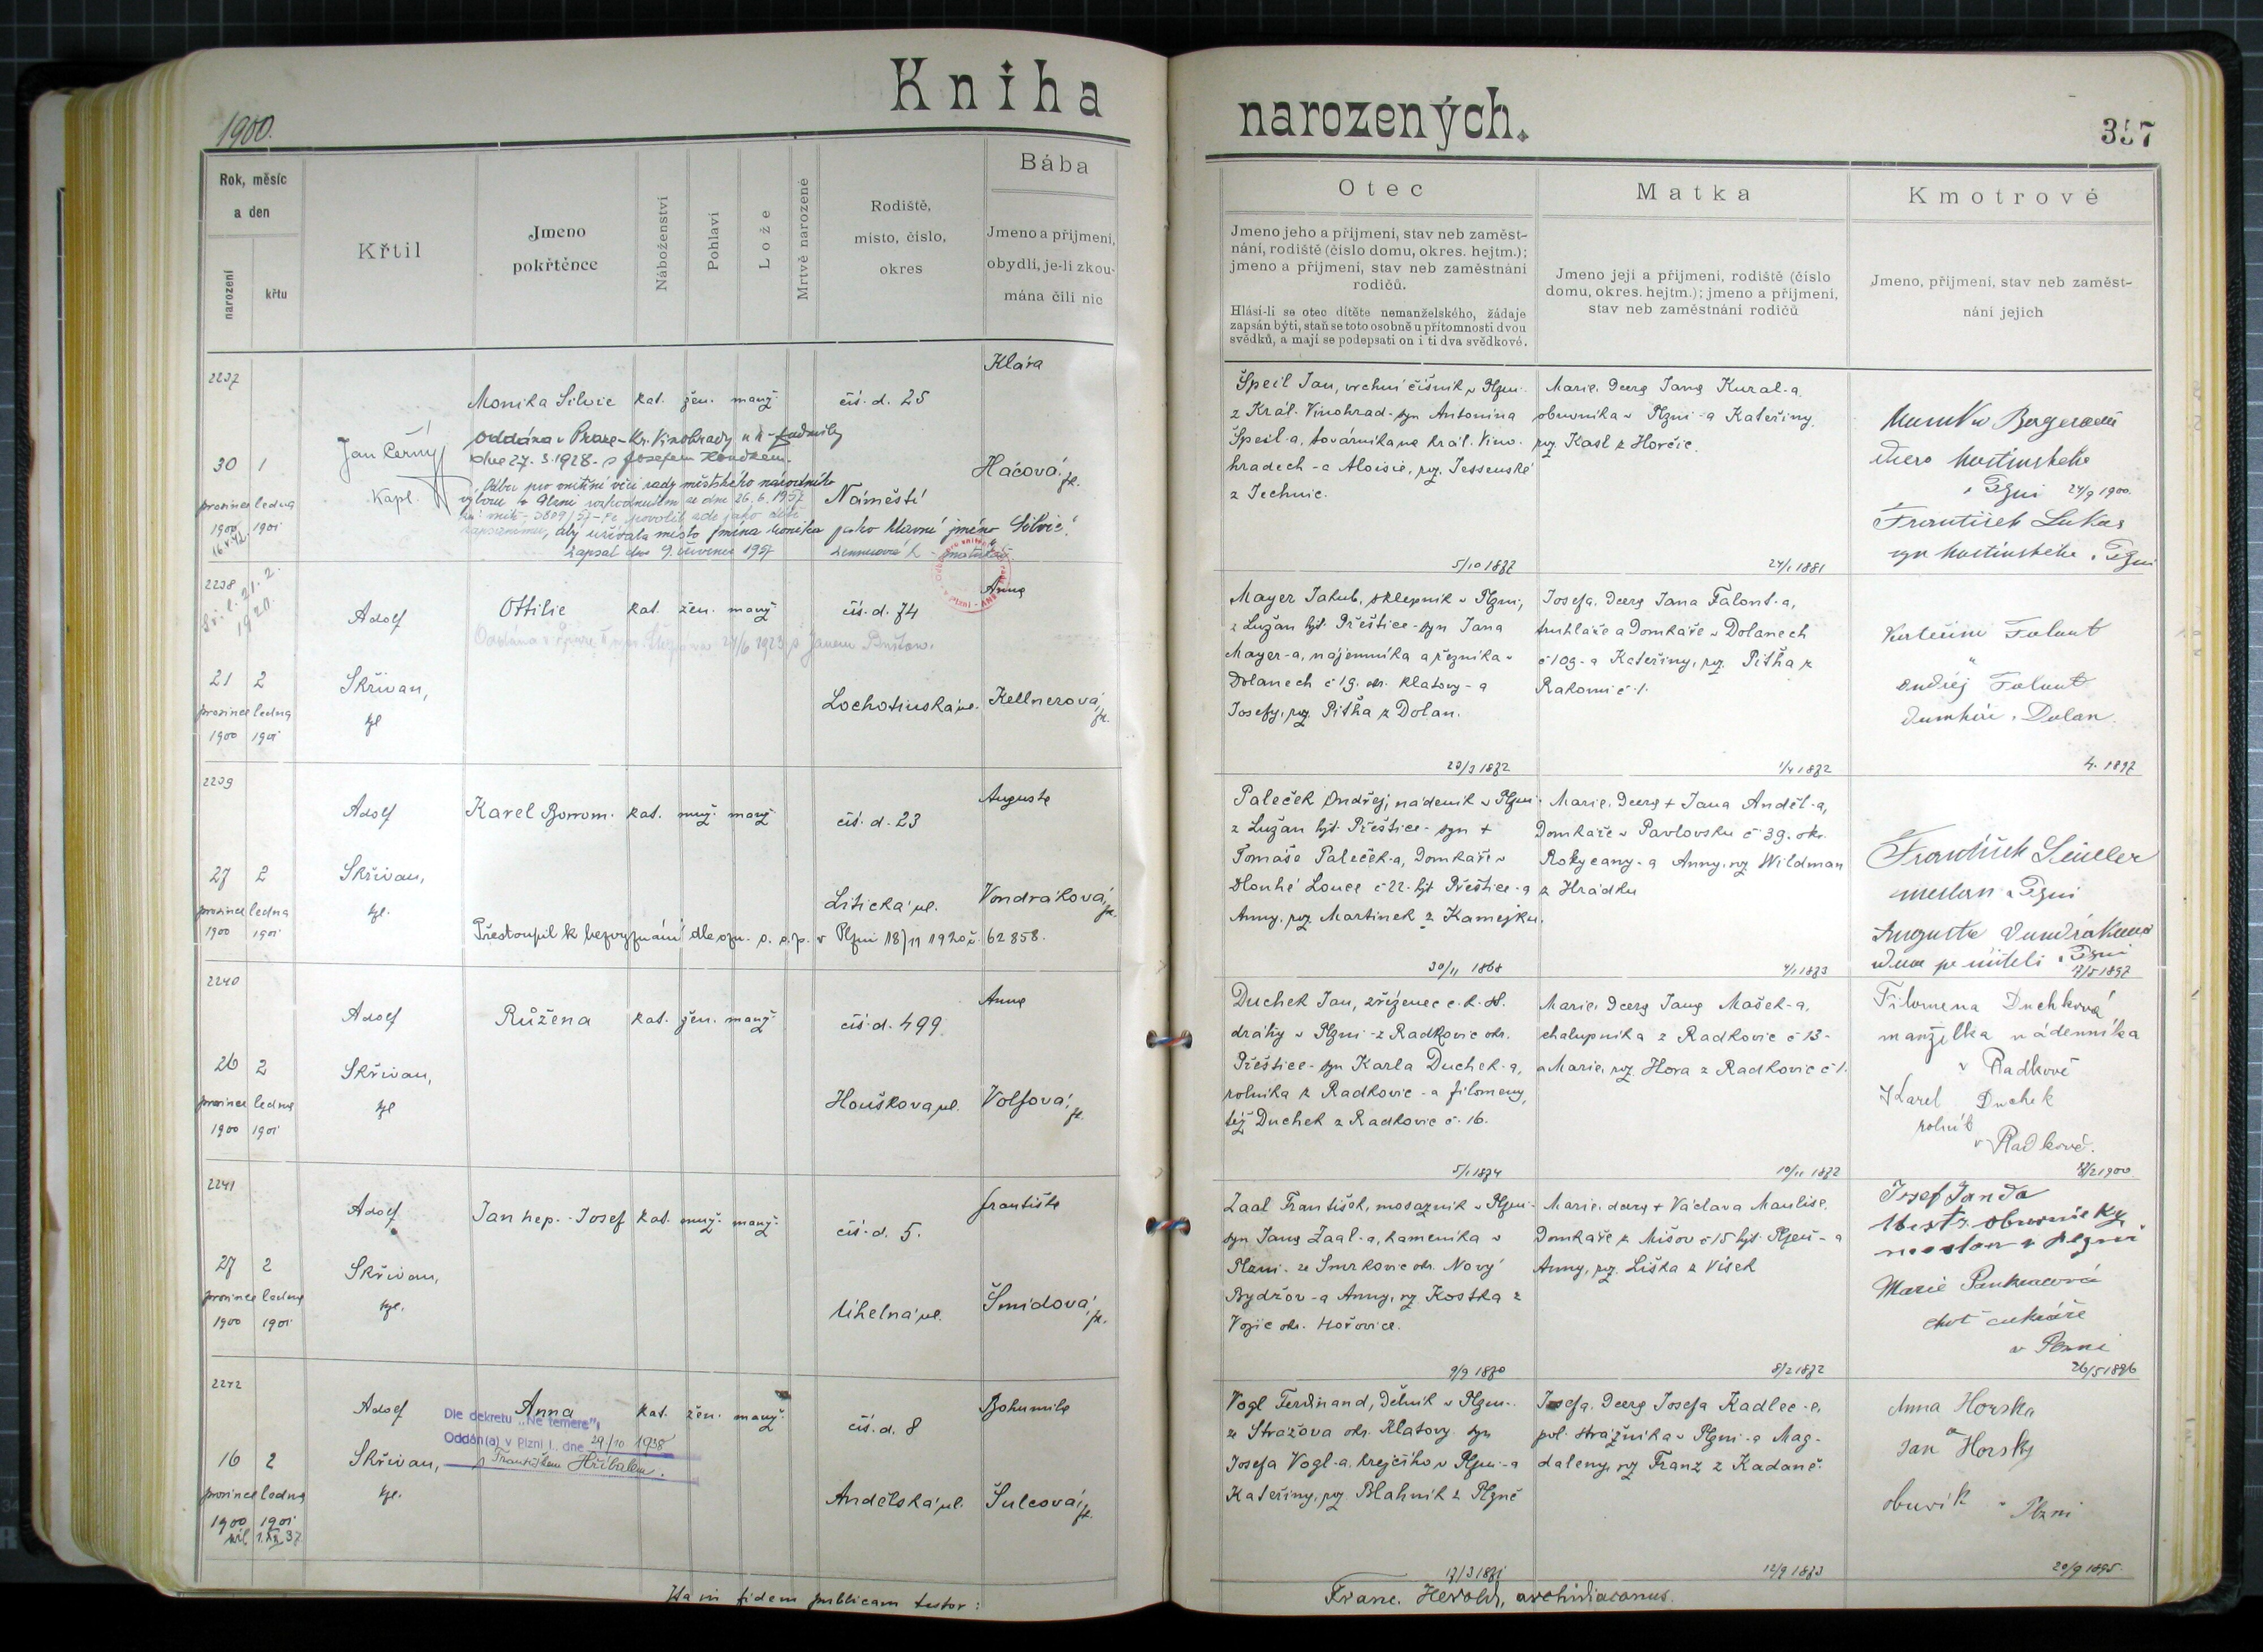 Kniha
narozených.
1900.
357
Rok, měsíc
a den
narození
křtu
Křtil
Jmeno
pokřtěnce
Náboženství
Pohlaví
Lože
Mrtvě narozené
Rodiště,
místo, číslo,
okres
Bába
Jmeno a příjmení,
obydlí, je-li zkou-
mána čili nic
Otec
Jmeno jeho a příjmení, stav neb zaměst-
nání, rodiště (číslo domu, okres. hejtm.);
jmeno a příjmení, stav neb zaměstnání
rodičů.
Hlásí-li se otec dítěte nemanželského, žádaje
zapsán býti, staň se toto osobně u přítomnosti dvou
svědků, a mají se podepsati on i ti dva svědkové.
Matka
Jmeno její a příjmení, rodiště (číslo
domu, okres. hejtm.); jmeno a příjmení,
stav neb zaměstnání rodičů
Kmotrové
Jmeno, příjmení, stav neb zaměst-
nání jejich
2237
30 1
prosince ledna
1900 1901
Jan Černý
Kapl.
Monika Silvie kat. žen. manž.
Oddána v Praze-Kr. Vinohrady u sv. Ludmily
dne 27.3.1928
Odbor pro vnitřní věci rady městského národního
výboru v Plzni rozhodnutím ze dne 26.6.1957
aby užívala místo jména Monika jako hlavní jméno "Silvie".
Zapsal dne 9. července 1957
čís. d. 25
Náměstí
Klára
Háčová, zk.
Špeil Jan, vrchní číšník v Plzni
z Král. Vinohrad - syn Antonína
Špeil-a, továrníka na Král. Vino-
hradech - a Aloisie, roz. Jessenské
z Technic.
5/10 1872
Marie, dcera Jana Kural-a,
obuvníka v Plzni - a Kateřiny,
roz. Kasl z Horčic.
24/1 1881
v Plzni 24/9 1900.
František Lukas
syn hostinského v Plzni
2238
21 2
prosince ledna
1900 1901
Adolf
Skřivan,
kpl
Ottilie kat. žen. manž.
čís. d. 74
Lochotínská ul.
Anna
Kellnerová, zk.
Mayer Jakub, sklepník v Plzni,
z Lužan hjt. Přeštice - syn Jana
Mayer-a, nájemníka a řezníka v
Dolanech č 19. okr. Klatovy - a
Josefy, roz. Pitha z Dolan.
Josefa, dcera Jana Falout-a,
truhláře a domkáře v Dolanech
č 109 - a Kateřiny, roz. Pitha z
Rakomi č 1.
1/4 1872
Kateřina Falout
a
Ondřej Falout
domkář v Dolan.
2239
27 2
prosince ledna
1900 1901
Adolf
Skřivan,
kpl.
Karel Borrom. kat. muž. manž.
Přestoupil k bezvyznání dle ozn. o. s. p. v Plzni 18/11 1920 č. 62858.
čís. d. 23
Litická ul.
Augusta
Vondráková, zk.
Paleček Ondřej, nádeník v Plzni
z Lužan hjt. Přeštice - syn +
Tomáše Paleček-a, domkáře v
Dlouhé Louce č 22. hjt Přeštice - a
Anny, roz. Martínek z Kamejku.
30/11 1868
Marie, dcera + Jana Anděl-a,
domkáře v Pavlovsku č 39. okr.
Rokycany - a Anny, roz Wildman
z Hrádku
4/1 1873
František
v Plzni
Augusta Vondráková
2240
26 2
prosince ledna
1900 1901
Adolf
Skřivan,
kpl
Růžena kat. žen. manž.
čís. d. 499
Houškova ul.
Anna
Volfová, zk.
Duchek Jan, zřízenec c. k. st.
dráhy v Plzni - z Radkovic okr.
Přeštice - syn Karla Duchek-a,
rolníka z Radkovic - a Filomeny,
též Duchek z Radkovic č. 16.
5/1 1874
Marie, dcera Jana Mašek-a,
chalupníka z Radkovic č 13 -
a Marie, roz. Hora z Radkovic č 1.
10/11 1872
Filomena Duchková
manželka nádenníka
v Radkově
Karel Duchek
rolník
v Radkově.
2241
27 2
prosince ledna
1900 1901
Adolf
Skřivan,
kpl.
Jan nep. - Josef kat. muž. manž.
čís. d. 5.
Uhelná ul.
Františka
Šmídová, zk.
Zaal František, mosazník v Plzni -
syn Jana Zaal-a, kameníka v
Plzni - ze Smrkovic okr. Nový
Bydžov - a Anny, roz Kostka z
Vozic okr. Hořovice.
9/9 1870
Marie, dcera + Václava Maulise,
domkáře z Míšov č 15 hjt. Plzeň - a
Anny, roz. Liška z Vísek
8/2 1872
Josef Janda
Mistr obuvnický
v Plzni
Marie Pankracová
choť cukráře
v Plzni
26/5 1896
2242
16 2
prosince ledna
1900 1901
Adolf
Skřivan,
kpl.
Anna kat. žen. manž.
Dle dekretu „Ne temere",
Oddán(a) v Plzni I., dne 29/10 1938
s Františkem Hříbalem.
čís. d. 8
Andělská ul.
Bohumila
Šulcová, zk.
Vogl Ferdinand, dělník v Plzni -
ze Strážova okr. Klatovy - syn
Josefa Vogl-a, krejčího v Plzni - a
Kateřiny, roz. Blahník z Plzně
17/3 1871
Josefa, dcera Josefa Kadlec-e,
pol. strážníka v Plzni - a Mag-
daleny, roz Franz z Kadaně.
12/9 1873
Anna Horska
a
Jan Horsky
obuvník v Plzni
20/9 1895.
Ita in fidem publicam testor:
Franc. Herold, archidiaconus.